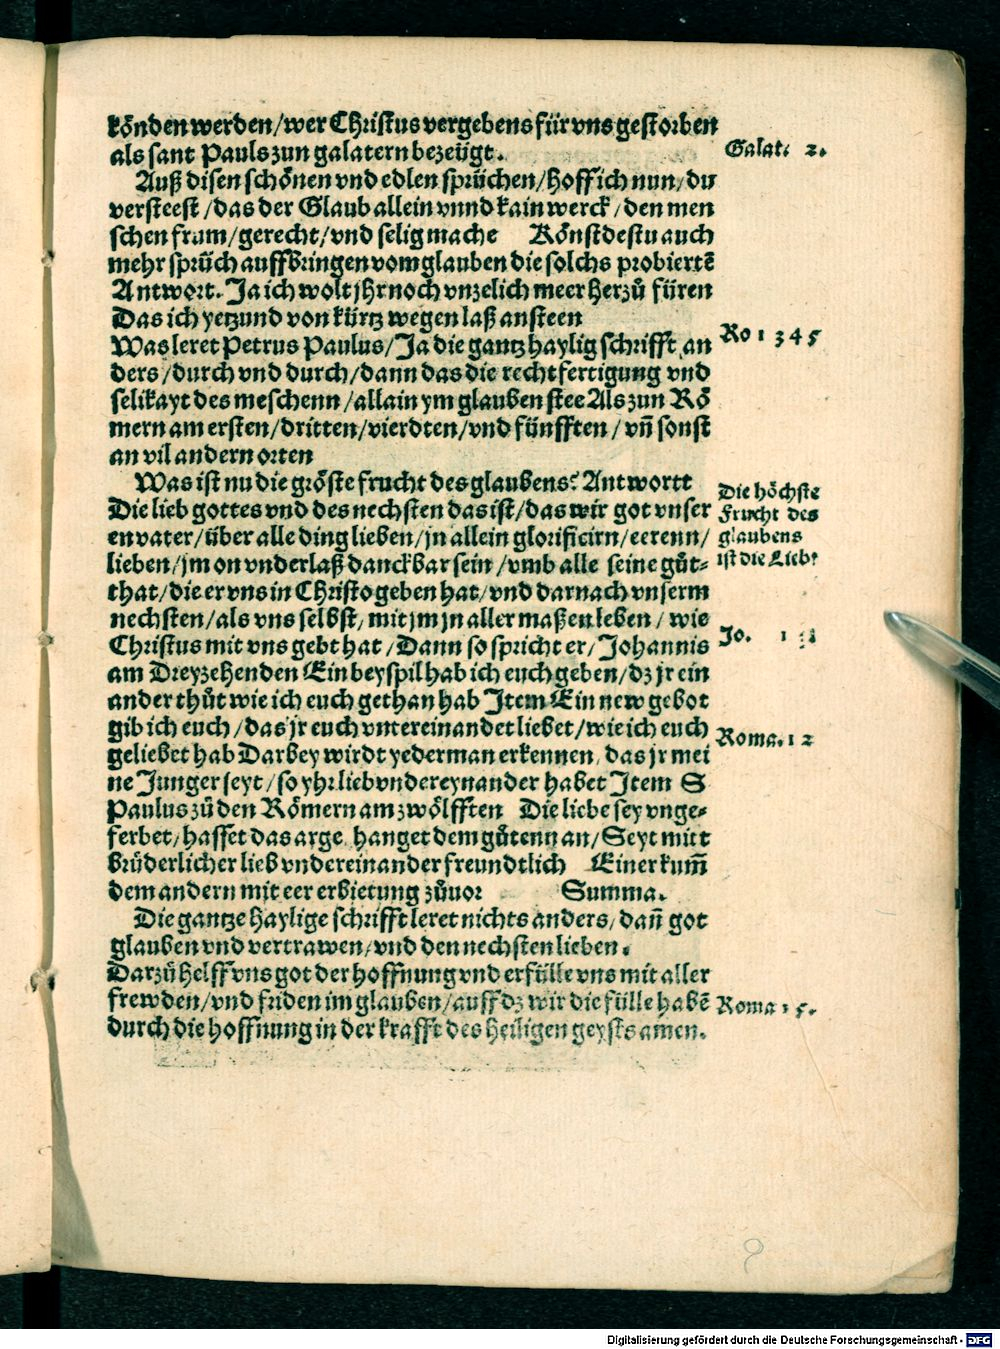 könden werden/wer Christus vergebens für vns gestorben
als sant Pauls zun galatern bezeügt.
Galat. 2.
Auß disen schönen vnd edlen sprüchen/hoff ich nun/du
versteest/das der Glaub allein vnnd kain werck/den men
schen frum/gerecht/vnd selig mache Könstdestu auch
mehr sprüch auffbringen vom glauben die solchs probiertē
Antwort. Ja ich wolt jhr noch vnzelich meer herzů füren
Das ich yetzund von kürtz wegen laß ansteen
Was leret Petrus Paulus/Ja die gantz haylig schrifft an
Ro 1 3 4 5
ders/durch vnd durch/dann das die rechtfertigung vnd
selikayt des meschenn/allain ym glauben stee Als zun Rö
mern am ersten/dritten/vierdten/vnd fünfften/vñ sonst
an vil andern orten
Was ist nu die gröste frucht des glaubens? Antwortt
Die lieb gottes vnd des nechsten das ist/das wir got vnser
en vater/über alle ding lieben/jn allein glorificirn/eerenn/
lieben/jm on vnderlaß danckbar sein/vmb alle seine gůt-
that/die er vns in Christo geben hat/vnd darnach vnserm
nechsten/als vns selbst, mit jm jn aller maßen leben/wie
Die höchste
Frucht des
glaubens
ist die Lieb.
Christus mit vns gebt hat/Dann so spricht er/Johannis
Jo. 1
am Dreyzehenden Ein beyspil hab ich euch geben/dz jr ein
ander thůt wie ich euch gethan hab Item Ein new gebot
gib ich euch/das jr euch vntereinandet liebet/wie ich euch
geliebet hab Darbey wirdt yederman erkennen, das jr mei
Roma. 12
ne Junger seyt/so yhr lieb vndereynander habet Item S
Paulus zů den Römern am zwölfften Die liebe sey vnge-
ferbet/hasset das arge, hanget dem gůtenn an/Seyt mit t
brüderlicher lieb vndereinander freundtlich Einer kum̄
dem andern mit eer erbietung zůuor Summa.
Die gantze haylige schrifft leret nichts anders/dañ got
glauben vnd vertrawen/vnd den nechsten lieben.
Darzů helff vns got der hoffnung vnd erfülle vns mit aller
frewden/vnd friden im glauben/auff dz wir die fülle habē
Roma 15.
durch die hoffnung in der krafft des heiligen geysts amen.
Digitalisierung gefördert durch die Deutsche Forschungsgemeinschaft - DFG